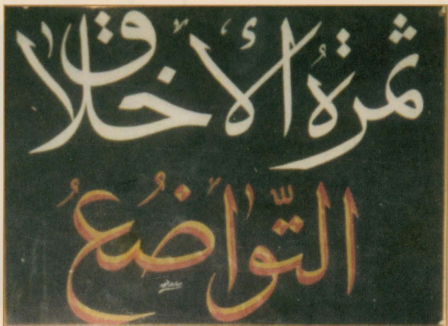 ثمرةُ الأخلاق
التّواضُعُ